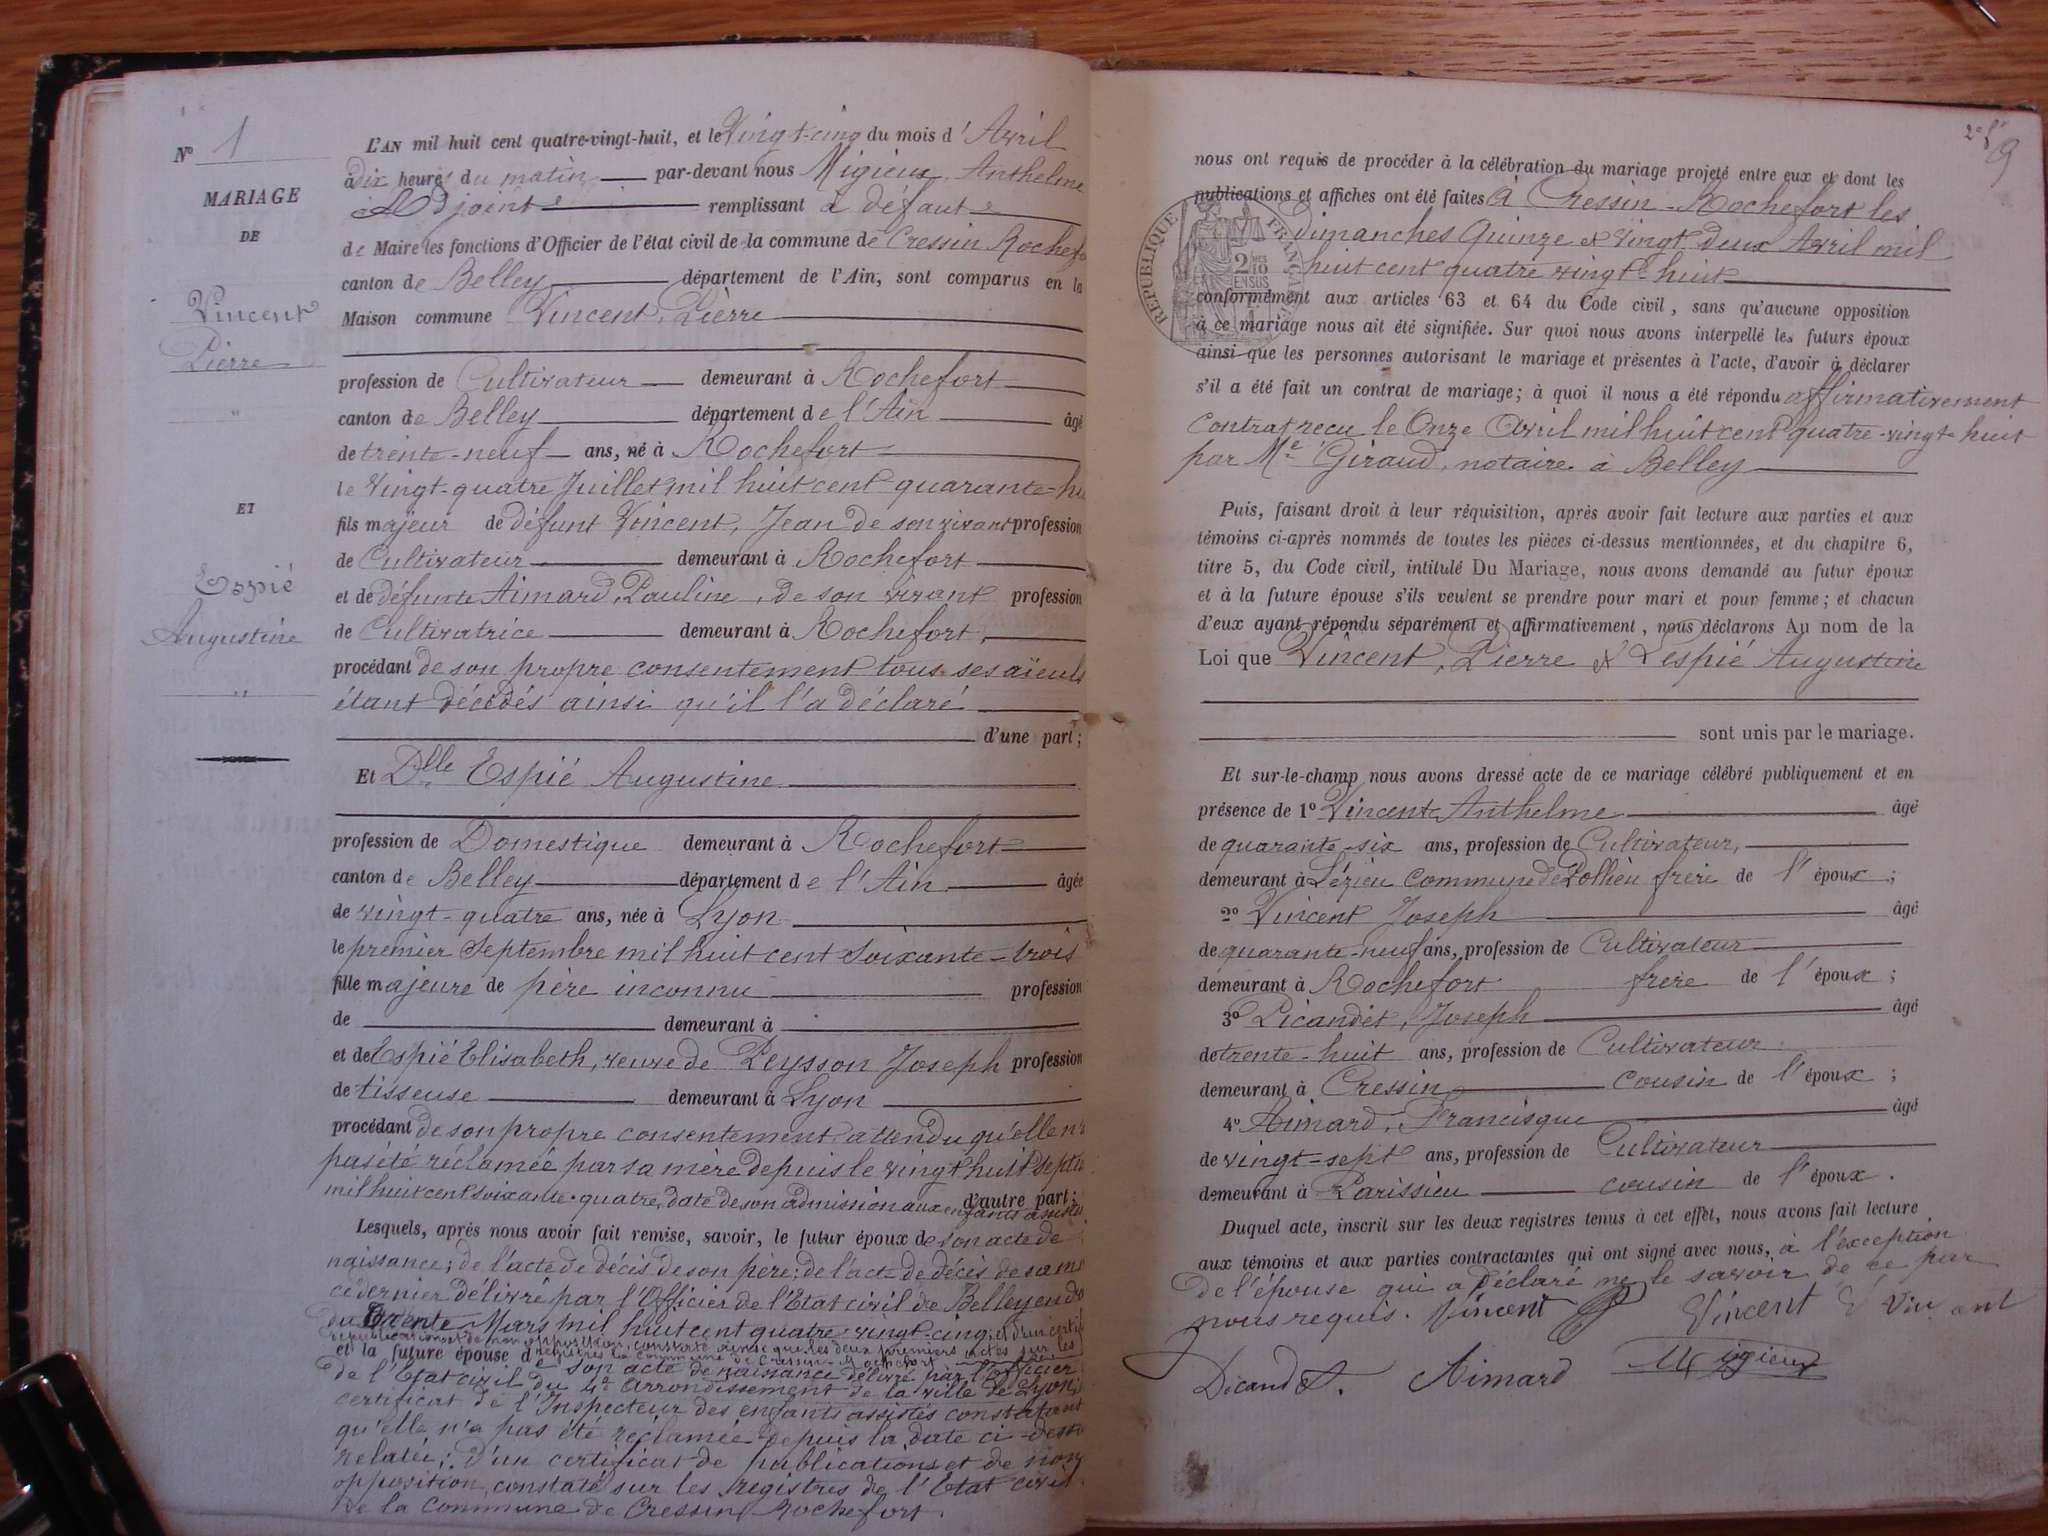 N° 1
MARIAGE
DE
Vincent
Pierre
ET
Espié
Augustine
L'AN mil huit cent quatre-vingt-huit, et le Vingt-cinq du mois d'Avril
à dix heures du matin par-devant nous Migieux Anthelme
Adjoint remplissant à défaut
de Maire les fonctions d'Officier de l'état civil de la commune de Cressin Rochefo
canton de Belley département de l'Ain, sont comparus en la
Maison commune Vincent, Pierre
profession de Cultivateur demeurant à Rochefort
canton de Belley département de l'Ain âgé
de trente-neuf ans, né à Rochefort
le Vingt-quatre Juillet mil huit cent quarante-hu
fils majeur de défunt Vincent, Jean de son vivant profession
de Cultivateur demeurant à Rochefort
et de défunte Aimard, Pauline, de son vivant profession
de Cultivatrice demeurant à Rochefort,
procédant de son propre consentement tous ses aïeuls
étant décédés ainsi qu'il l'a déclaré
d'une part;
Et Dlle Espié Augustine
profession de Domestique demeurant à Rochefort
canton de Belley département de l'Ain âgée
de vingt-quatre ans, née à Lyon
le premier Septembre mil huit cent soixante-trois
fille majeure de père inconnu profession
de demeurant à
et de Espié Elisabeth, veuve de Peysson Joseph profession
de tisseuse demeurant à Lyon
procédant de son propre consentement attendu qu'elle n'a
pas été réclamée par sa mère depuis le vingt huit septe
mil huit cent soixante-quatre, date de son admission aux enfants assistés d'autre part;
Lesquels, après nous avoir fait remise, savoir, le futur époux de son acte de
naissance; de l'acte de décès de son père; de l'acte de décès de sa me
ce dernier délivré par l'Officier de l'Etat civil de Belley en d
du trente Mars mil huit cent quatre-vingt-cinq, et d'un certi
de publications et de non opposition, constaté ainsi que les deux premiers actes sur les
registres de la commune de Cressin-Rochefort
et la future épouse de son acte de naissance délivré par l'Officier
de l'Etat civil du 4e arrondissement de la ville de Lyon,
certificat de l'Inspecteur des enfants assistés constatant
qu'elle n'a pas été réclamée depuis la date ci-dess
relatée; d'un certificat de publications et de non
opposition, constaté sur les registres de l'Etat civil
de la commune de Cressin Rochefort.
9
nous ont requis de procéder à la célébration du mariage projeté entre eux et dont les
publications et affiches ont été faites à Cressin-Rochefort les
dimanches Quinze et vingt-deux Avril mil
huit cent quatre vingt-huit
RÉPUBLIQUE FRANÇAISE
2/10 EN SUS
conformément aux articles 63 et 64 du Code civil, sans qu'aucune opposition
à ce mariage nous ait été signifiée. Sur quoi nous avons interpellé les futurs époux
ainsi que les personnes autorisant le mariage et présentes à l'acte, d'avoir à déclarer
s'il a été fait un contrat de mariage; à quoi il nous a été répondu affirmativement
contrat reçu le Onze Avril mil huit cent quatre-vingt-huit
par Me Giraud, notaire à Belley
Puis, faisant droit à leur réquisition, après avoir fait lecture aux parties et aux
témoins ci-après nommés de toutes les pièces ci-dessus mentionnées, et du chapitre 6,
titre 5, du Code civil, intitulé Du Mariage, nous avons demandé au futur époux
et à la future épouse s'ils veulent se prendre pour mari et pour femme; et chacun
d'eux ayant répondu séparément et affirmativement, nous déclarons Au nom de la
Loi que Vincent, Pierre & Lespié Augustine
sont unis par le mariage.
Et sur-le-champ nous avons dressé acte de ce mariage célébré publiquement et en
présence de 1° Vincent Anthelme âgé
de quarante-six ans, profession de Cultivateur,
demeurant à Lézieu commune de Pollieu frère de l'époux;
2° Vincent Joseph âgé
de quarante-neuf ans, profession de Cultivateur
demeurant à Rochefort frère de l'époux;
3° Dicandet, Joseph âgé
de trente-huit ans, profession de Cultivateur
demeurant à Cressin cousin de l'époux;
4° Aimard, Francisque âgé
de vingt-sept ans, profession de Cultivateur
demeurant à Parissieu cousin de l'époux.
Duquel acte, inscrit sur les deux registres tenus à cet effet, nous avons fait lecture
aux témoins et aux parties contractantes qui ont signé avec nous, à l'exception
de l'épouse qui a déclaré ne le savoir de ce par
nous requis. Vincent P Vincent Vincent
Dicandet. Aimard Migieux